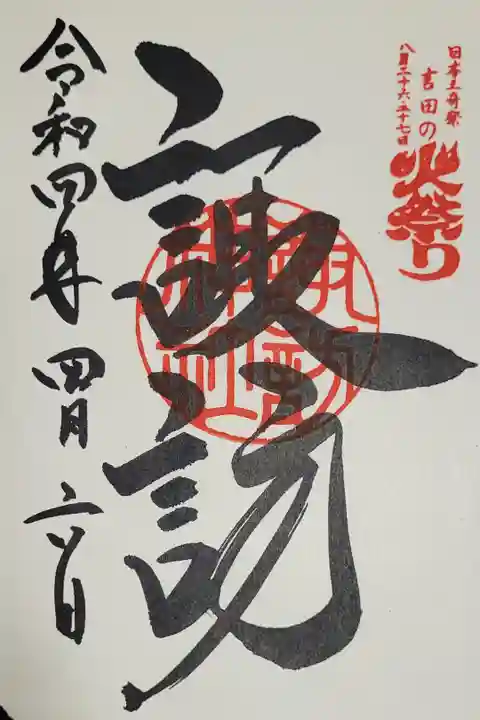 日本三奇祭
吉田の
八月二十六・二十七日
火祭り
諏訪
令和四年 四月 日